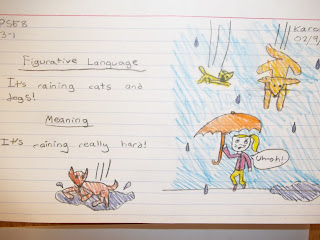 PSEB
3-1
02/9/
Figurative Language
It's raining cats and
dogs!
Meaning
It's raining really hard!
Uh-oh!